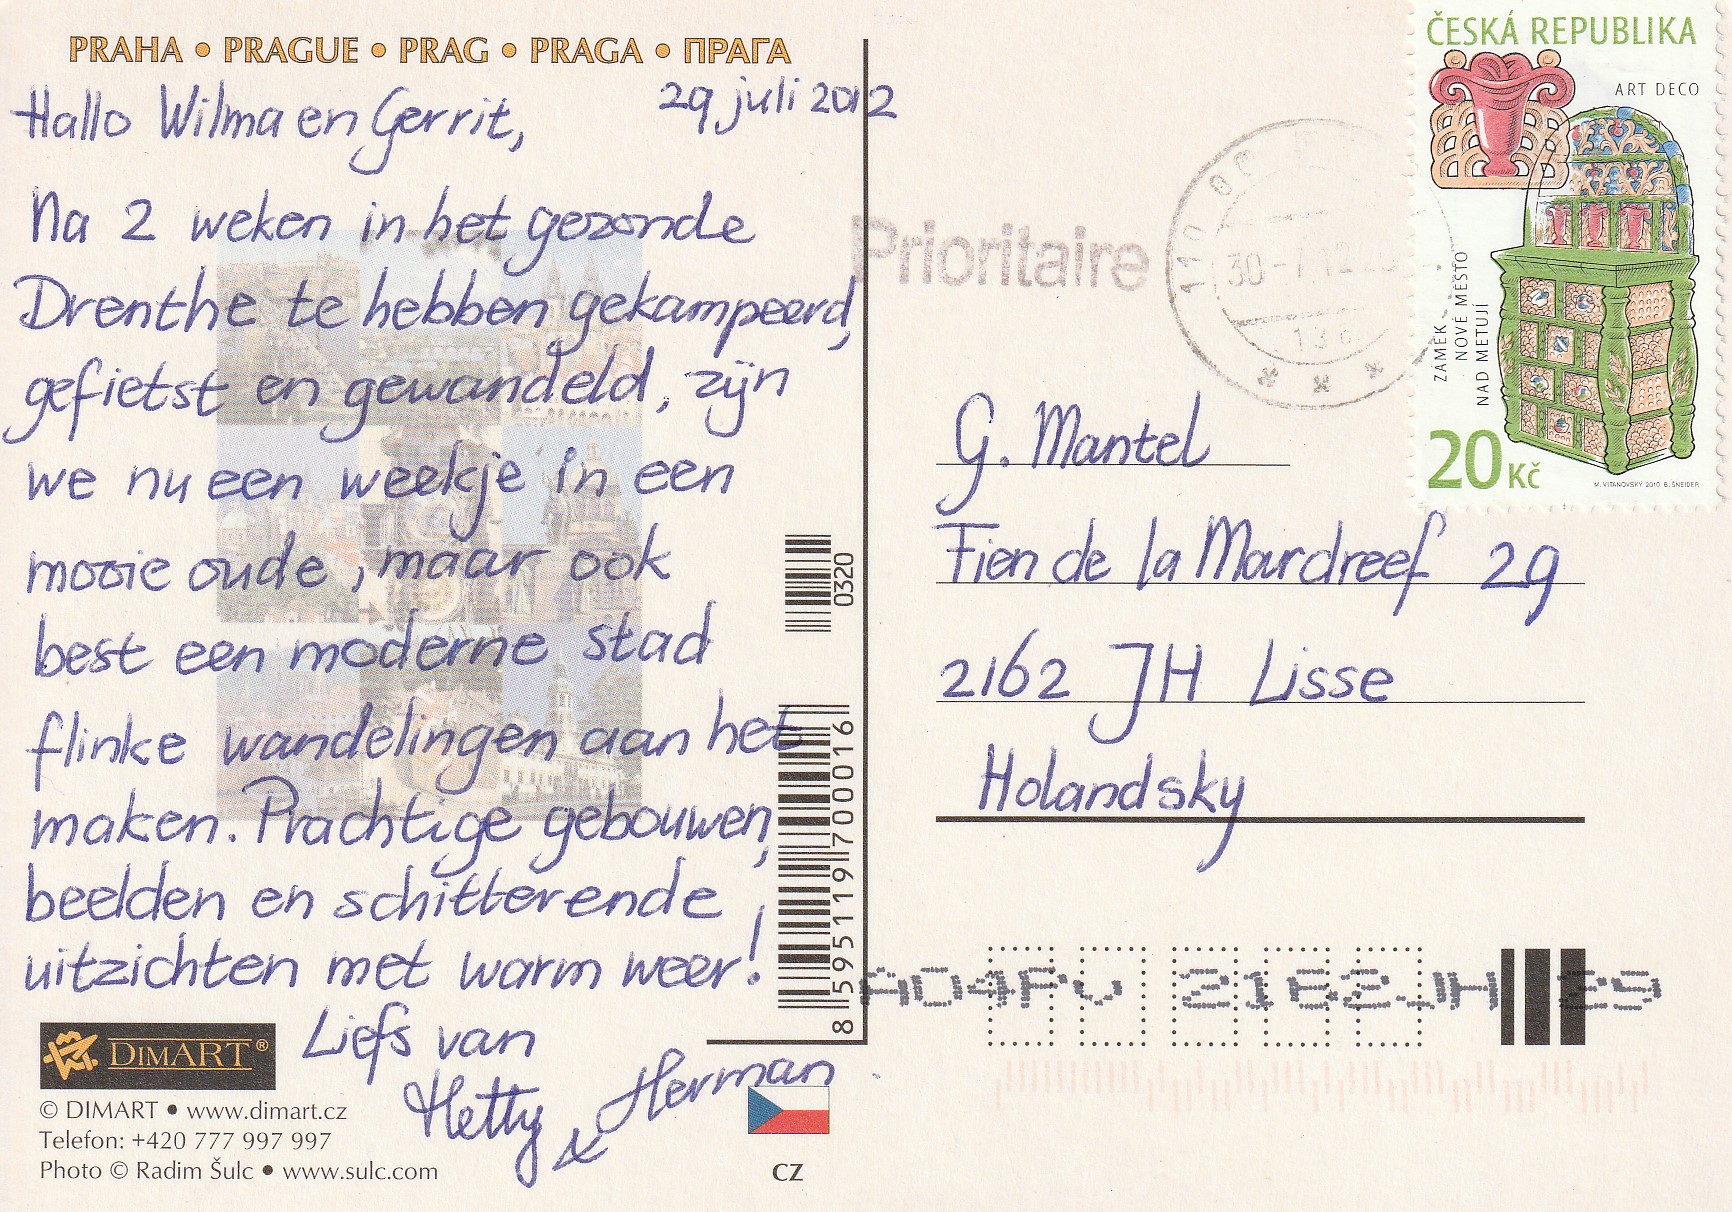 PRAHA • PRAGUE • PRAG • PRAGA • ПРАГА
29 juli 2012
Hallo Wilma en Gerrit,
Na 2 weken in het gezonde
Drenthe te hebben gekampeerd,
gefietst en gewandeld, zijn
we nu een weekje in een
mooie oude, maar ook
best een moderne stad
flinke wandelingen aan het
maken. Prachtige gebouwen,
beelden en schitterende
uitzichten met warm weer!
Liefs van
Hetty & Herman
DIMART®
© DIMART • www.dimart.cz
Telefon: +420 777 997 997
Photo © Radim Šulc • www.sulc.com
CZ
0320
8595119700016
Prioritaire
ČESKÁ REPUBLIKA
ART DECO
ZÁMEK
NOVÉ MĚSTO
NAD METUJÍ
20 Kč
M. VITANOVSKÝ 2010 B. ŠNEIDER
G. Mantel
Fien de la Mardreef 29
2162 JH Lisse
Holandsky
2162JH 29